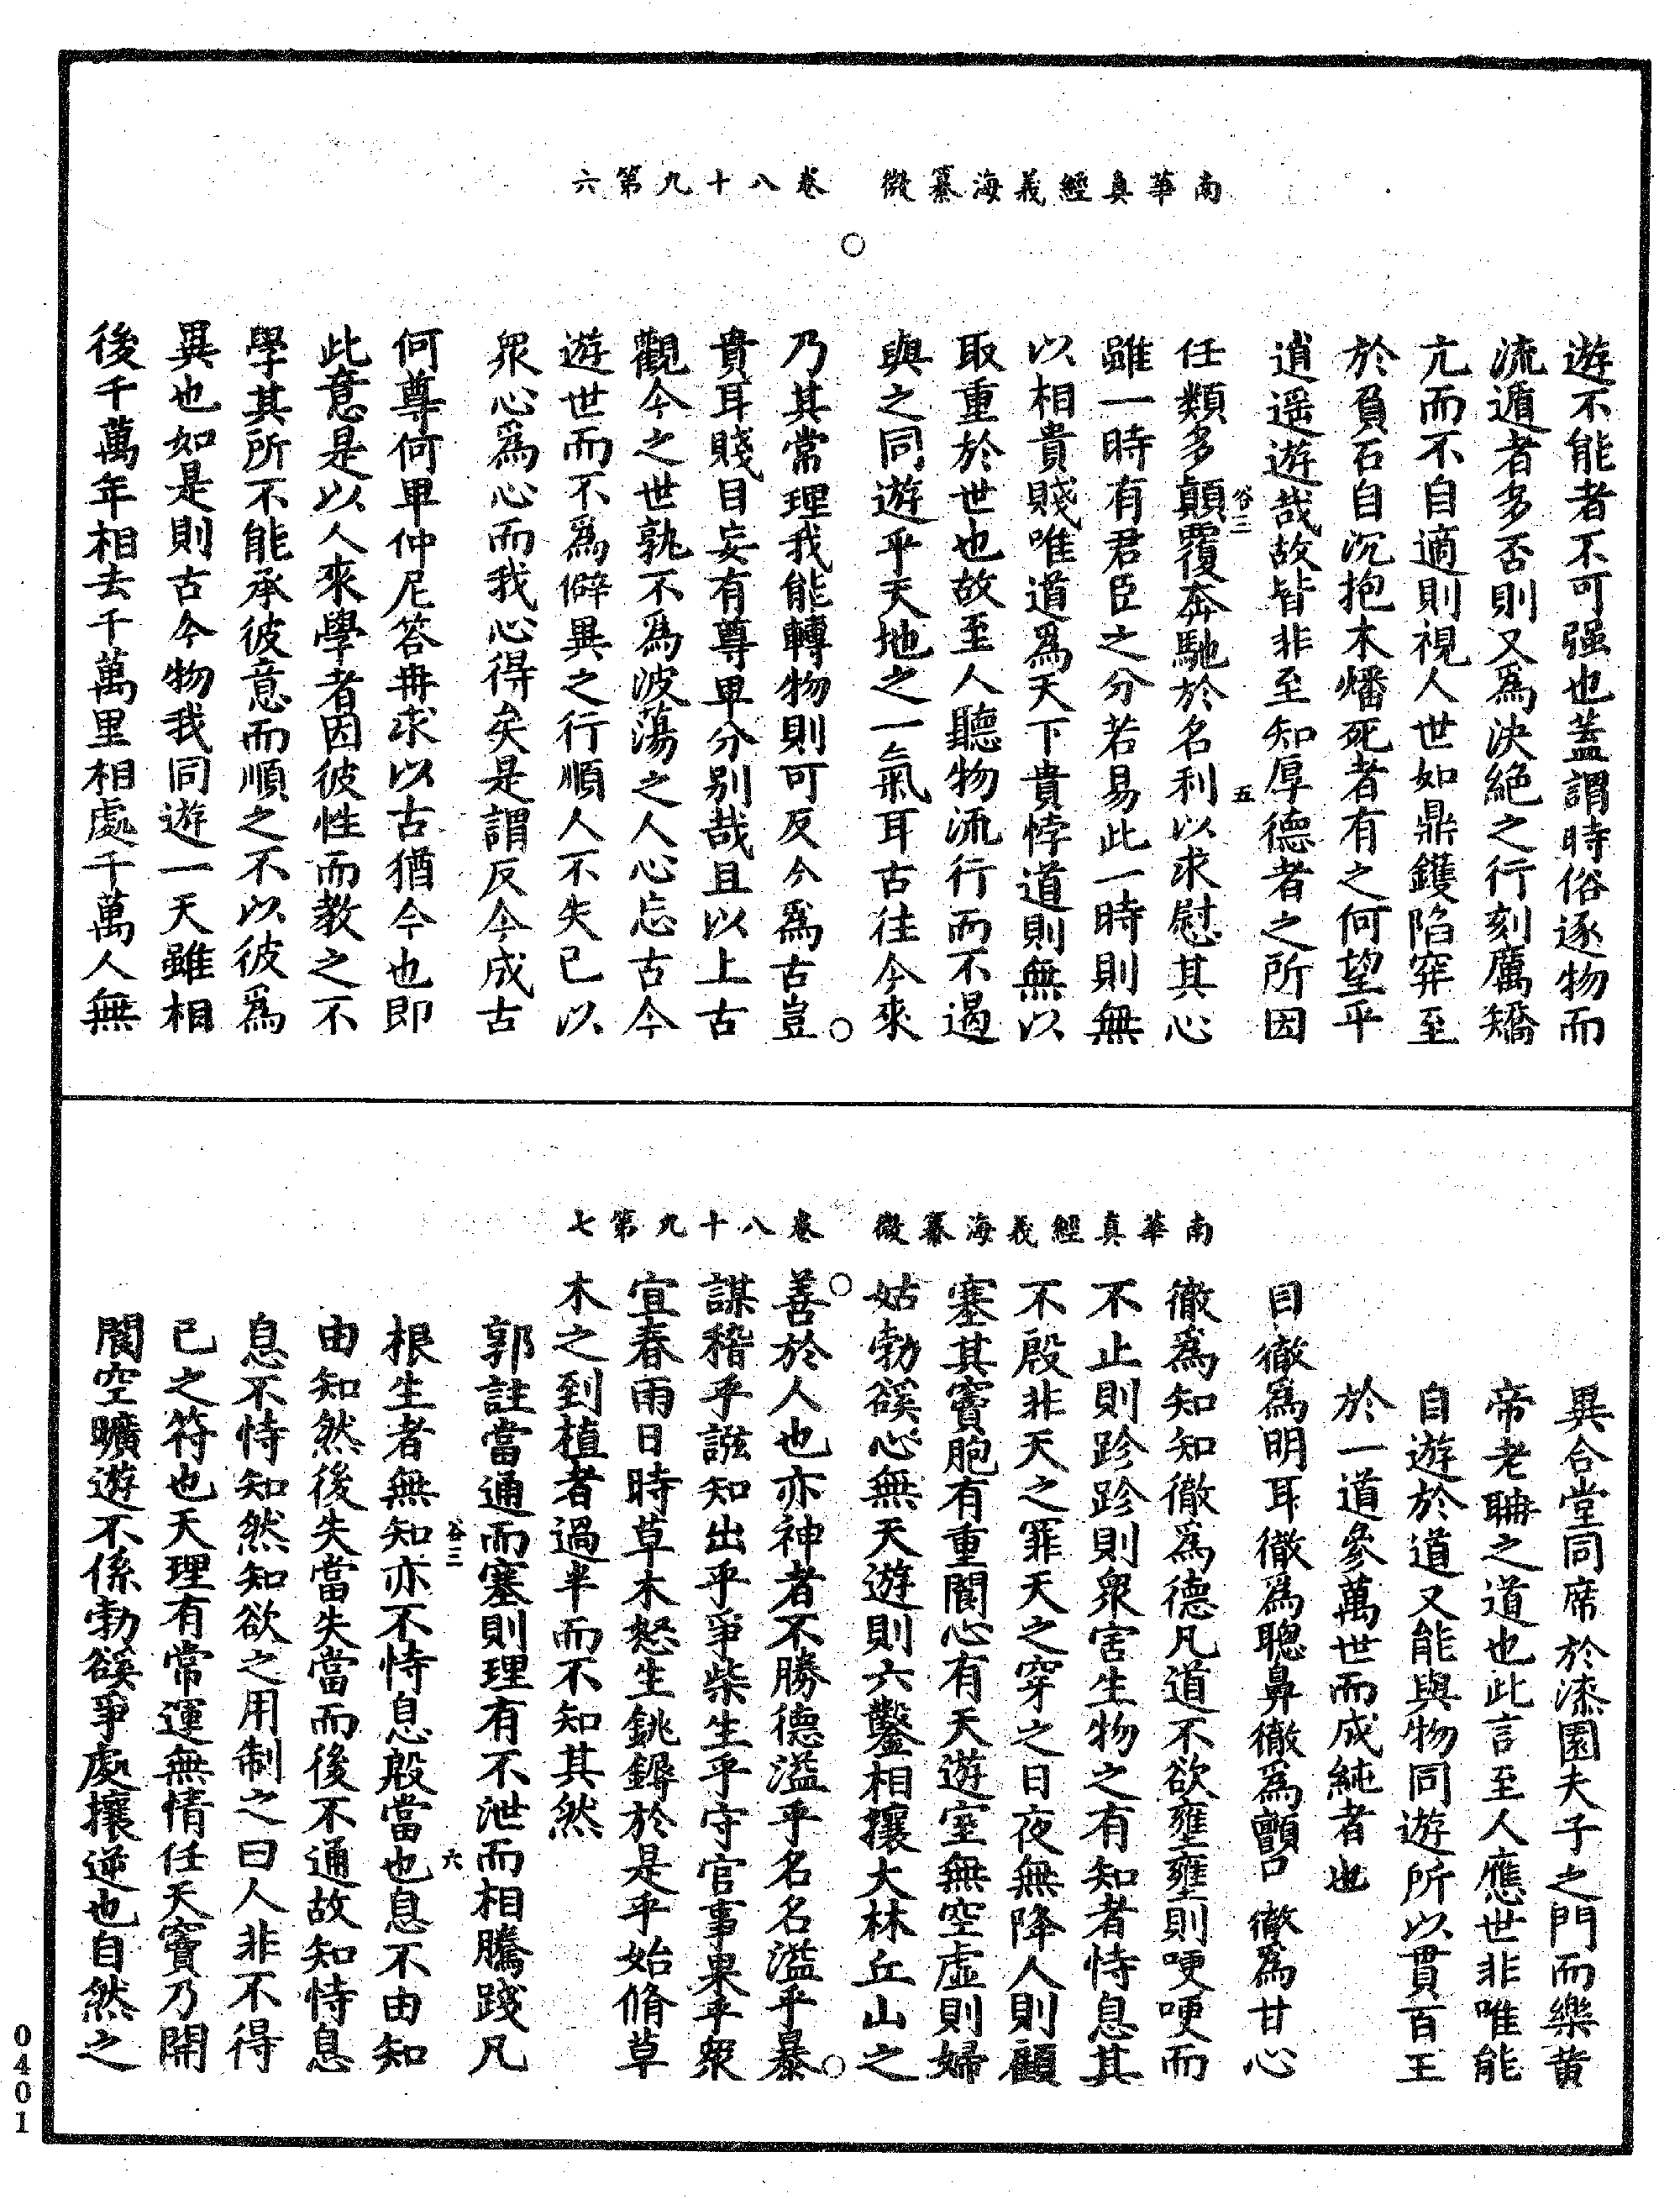 南華真經義海纂微　卷八十九第六
遊不能者不可强也蓋謂時俗逐物而
流遁者多否則又爲決絶之行刻厲矯
亢而不自適則視人世如鼎鑊陷穽至
於負石自沉抱木燔死者有之何望乎
逍遥遊哉故皆非至知厚德者之所因
谷三　五
任類多顛覆奔馳於名利以求慰其心
雖一時有君臣之分若易此一時則無
以相貴賤唯道爲天下貴悖道則無以
取重於世也故至人聽物流行而不遏
與之同遊乎天地之一氣耳古往今來
乃其常理我能轉物則可反今爲古豈
貴耳賤目妄有尊卑分别哉且以上古
觀今之世孰不爲波蕩之人心忘古今
遊世而不爲僻異之行順人不失己以
衆心爲心而我心得矣是謂反今成古
何尊何卑仲尼答冉求以古猶今也即
此意是以人來學者因彼性而教之不
學其所不能承彼意而順之不以彼爲
異也如是則古今物我同遊一天雖相
後千萬年相去千萬里相處千萬人無
南華真經義海纂微　卷八十九第七
異合堂同席於漆園夫子之門而樂黄
帝老聃之道也此言至人應世非唯能
自遊於道又能與物同遊所以貫百王
於一道參萬世而成純者也
目徹爲明耳徹爲聰鼻徹爲顫口徹爲甘心
徹爲知知徹爲德凡道不欲壅壅則哽哽而
不止則跈跈則衆害生物之有知者恃息其
不殷非天之罪天之穿之日夜無降人則顧
塞其竇胞有重閬心有天遊室無空虚則婦
姑勃谿心無天遊則六鑿相攘大林丘山之
善於人也亦神者不勝德溢乎名名溢乎暴
謀稽乎誸知出乎爭柴生乎守官事果乎衆
宜春雨日時草木怒生銚鎒於是乎始脩草
木之到植者過半而不知其然
郭註當通而塞則理有不泄而相騰踐凡
谷三　六
根生者無知亦不恃息殷當也息不由知
由知然後失當失當而後不通故知恃息
息不恃知然知欲之用制之曰人非不得
已之符也天理有常運無情任天竇乃開
閬空曠遊不係勃谿爭處攘逆也自然之
0401